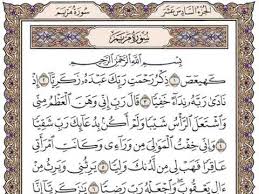 الجزء السادس عشر
سورة مريم
سورة مريم
بسم الله الرحمن الرحيم
كهيعص ١ ذكر رحمت ربك عبده زكريا ٢ إذ
نادى ربه نداء خفيا ٣ قال رب إني وهن العظم مني
واشتعل الرأس شيبا ولم أكن بدعائك رب شقيا
٤ وإني خفت الموالي من وراءي وكانت امرأتي
عاقرا فهب لي من لدنك وليا ٥ يرثني ويرث من
ءال يعقوب واجعله رب رضيا